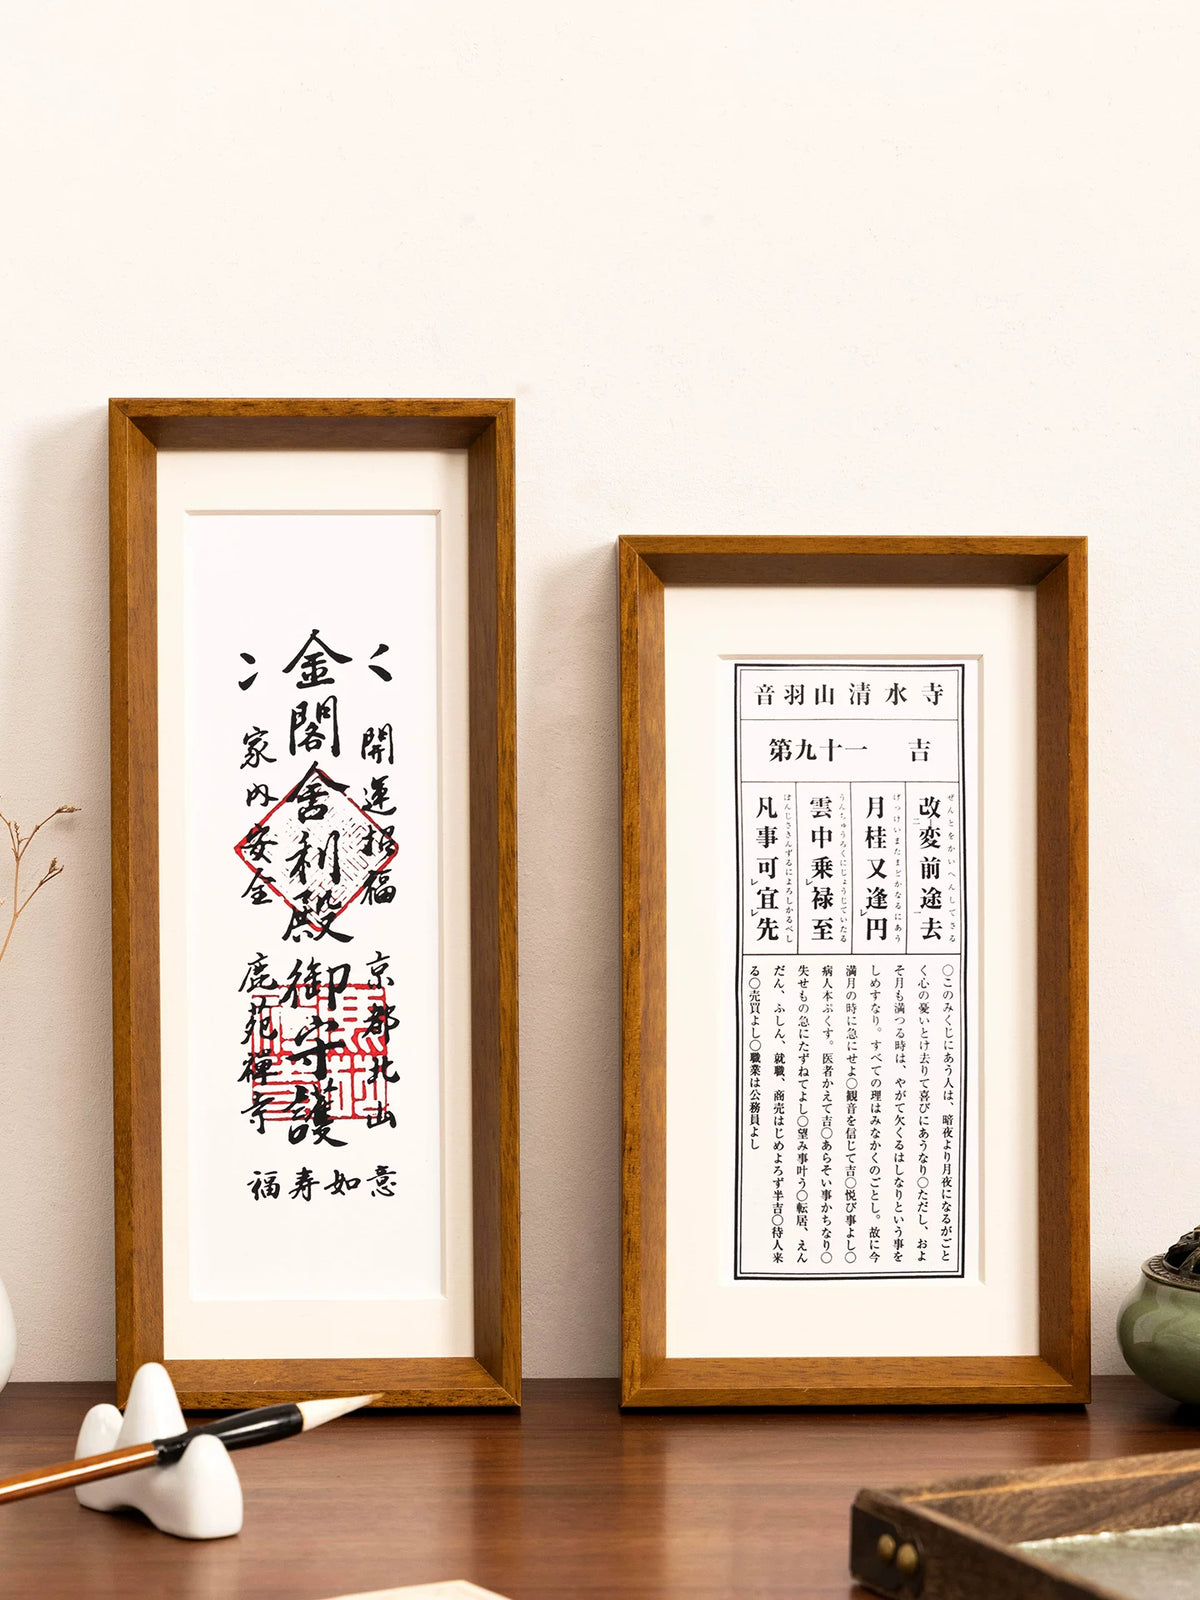 開運招福 京都北山
金閣舎利殿御守護
家内安全 鹿苑禅寺
福寿如意
音羽山清水寺
第九十一 吉
改変前途去
ぜんとをかいへんしてさる
月桂又逢円
げっけいまたまどかなるにあう
雲中乗禄至
うんちゅうろくにじょうじていたる
凡事可宜先
はんじさきんずるによろしかるべし
〇このみくじにあう人は、暗夜より月夜になるがごと
く心の憂いとけ去りて喜びにあうなり〇ただし、およ
そ月も満つる時は、やがて欠くるはしなりという事を
しめすなり。すべての理はみなかくのごとし。故に今
満月の時に急にせよ〇観音を信じて吉〇悦び事よし〇
病人本ぷくす。医者かえて吉〇あらそい事かちなり〇
失せもの急にたずねてよし〇望み事叶う〇転居、えん
だん、ふしん、就職、商売はじめよろず半吉〇待人来
る〇売買よし〇職業は公務員よし